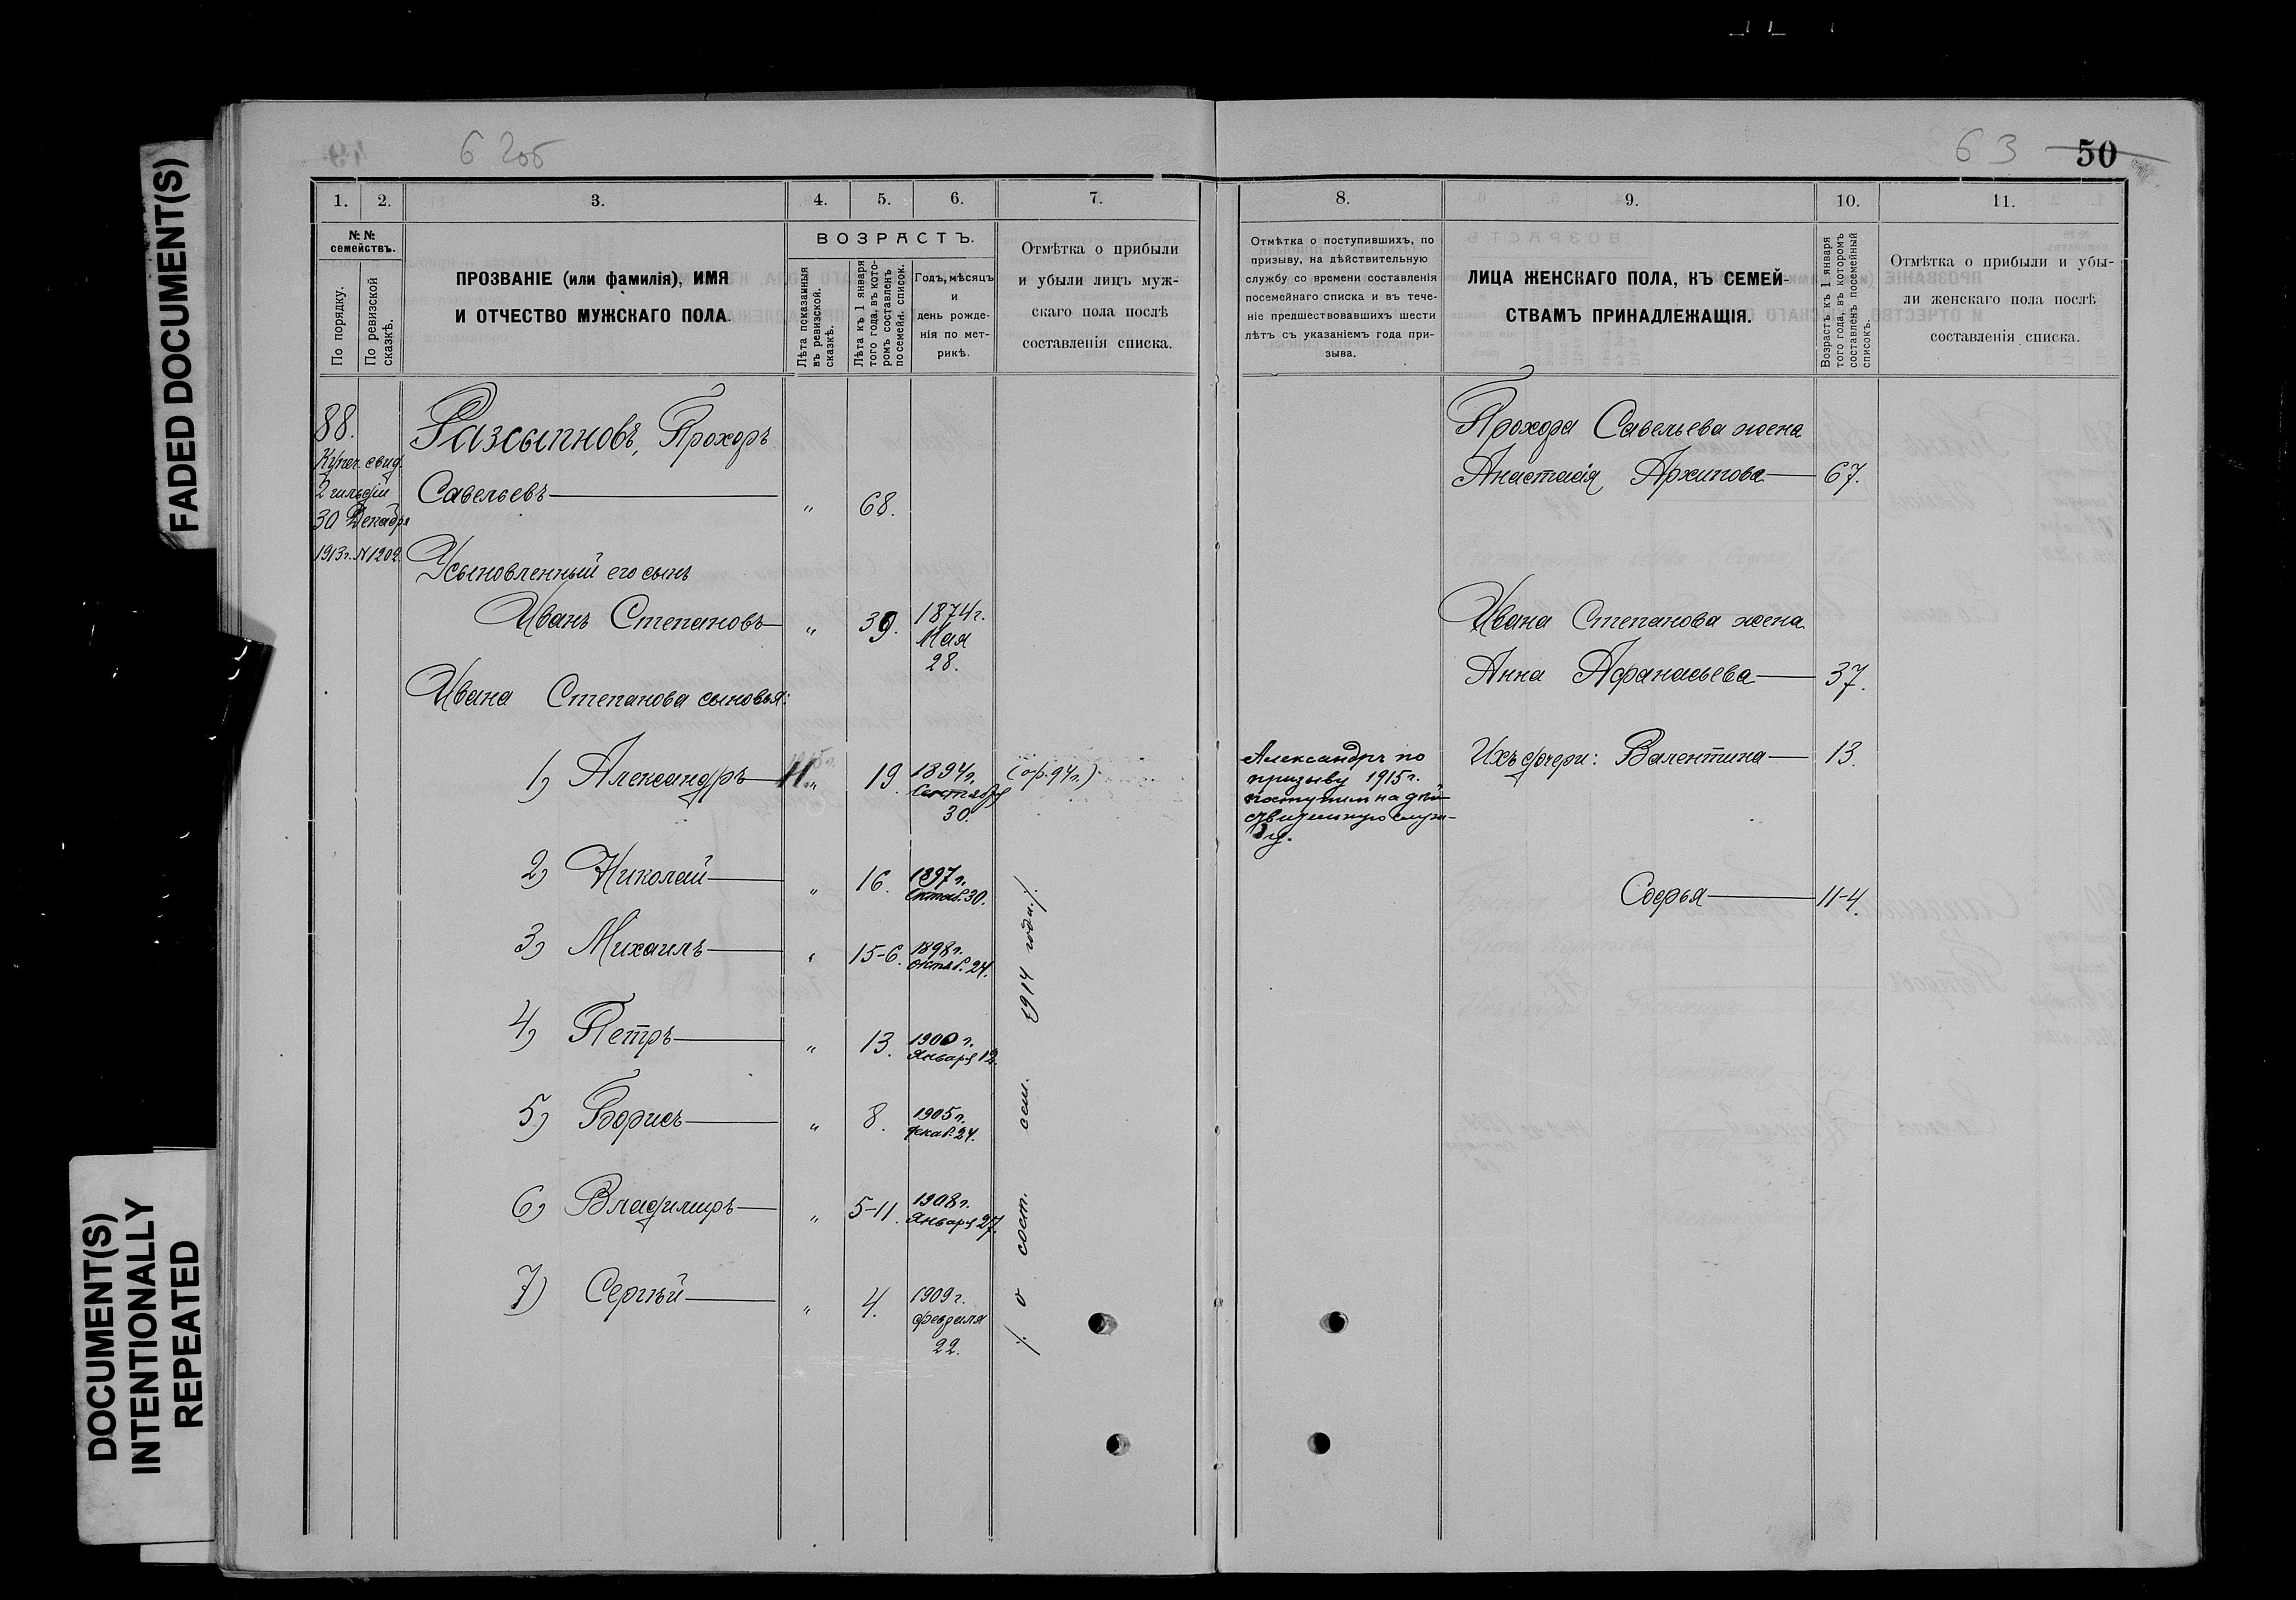 FADED DOCUMENT(S)
DOCUMENT(S)
INTENTIONALLY
REPEATED
62об
63 50
1. 2. 3. 4. 5. 6. 7.
№№
семействъ.
По порядку.
По ревизской
сказкѣ.
ПРОЗВАНІЕ (или фамилія), ИМЯ
И ОТЧЕСТВО МУЖСКАГО ПОЛА.
ВОЗРАСТЪ.
Лѣта показанныя
въ ревизской.
сказкѣ.
Лѣта къ 1 января
того года, въ кото-
ромъ составленъ
посемейн. список.
Годъ, мѣсяцъ
и
день рожде-
нія по мет-
рикѣ.
Отмѣтка о прибыли
и убыли лицъ муж-
скаго пола послѣ
составленія списка.
88.
Купеч. свид.
2 гильдіи
30 Декабря
1913 г. № 1202.
Разсыпновъ, Прохоръ
Савельевъ — " 68.
Усыновленный его сынъ
Иванъ Степановъ — " 39. 1874 г.
Мая
28.
Ивана Степанова сыновья:
1) Александръ — " 19. 1894 г. (ор. 94 г.)
Сентября
30.
2) Николай — " 16. 1897 г.
Октяб. 30.
3) Михаилъ — " 15-6. 1898 г.
Октяб. 24.
4) Петръ — " 13. 1900 г.
Января 12.
5) Борисъ — " 8. 1905 г.
Декаб. 24.
6) Владимиръ — " 5-11. 1908 г.
Января 27.
7) Сергѣй — " 4. 1909 г.
Февраля
22.
/: о сост. сем. 1914 года./.
8. 9. 10. 11.
Отмѣтка о поступившихъ, по
призыву, на дѣйствительную
службу со времени составленія
посемейнаго списка и въ тече-
ніе предшествовавшихъ шести
лѣтъ съ указаніемъ года при-
зыва.
ЛИЦА ЖЕНСКАГО ПОЛА, КЪ СЕМЕЙ-
СТВАМЪ ПРИНАДЛЕЖАЩІЯ.
Возрастъ къ 1 января
того года, въ которомъ
составленъ посемейный
списокъ.
Отмѣтка о прибыли и убы-
ли женскаго пола послѣ
составленія списка.
Прохора Савельева жена
Анастасія Архипова — 67.
Ивана Степанова жена
Анна Афанасьева — 37.
Ихъ дочери: Валентина — 13.
Софья — 11-4.
Александръ по
призыву 1915 г.
поступилъ на дѣй-
ствительную служ-
бу.